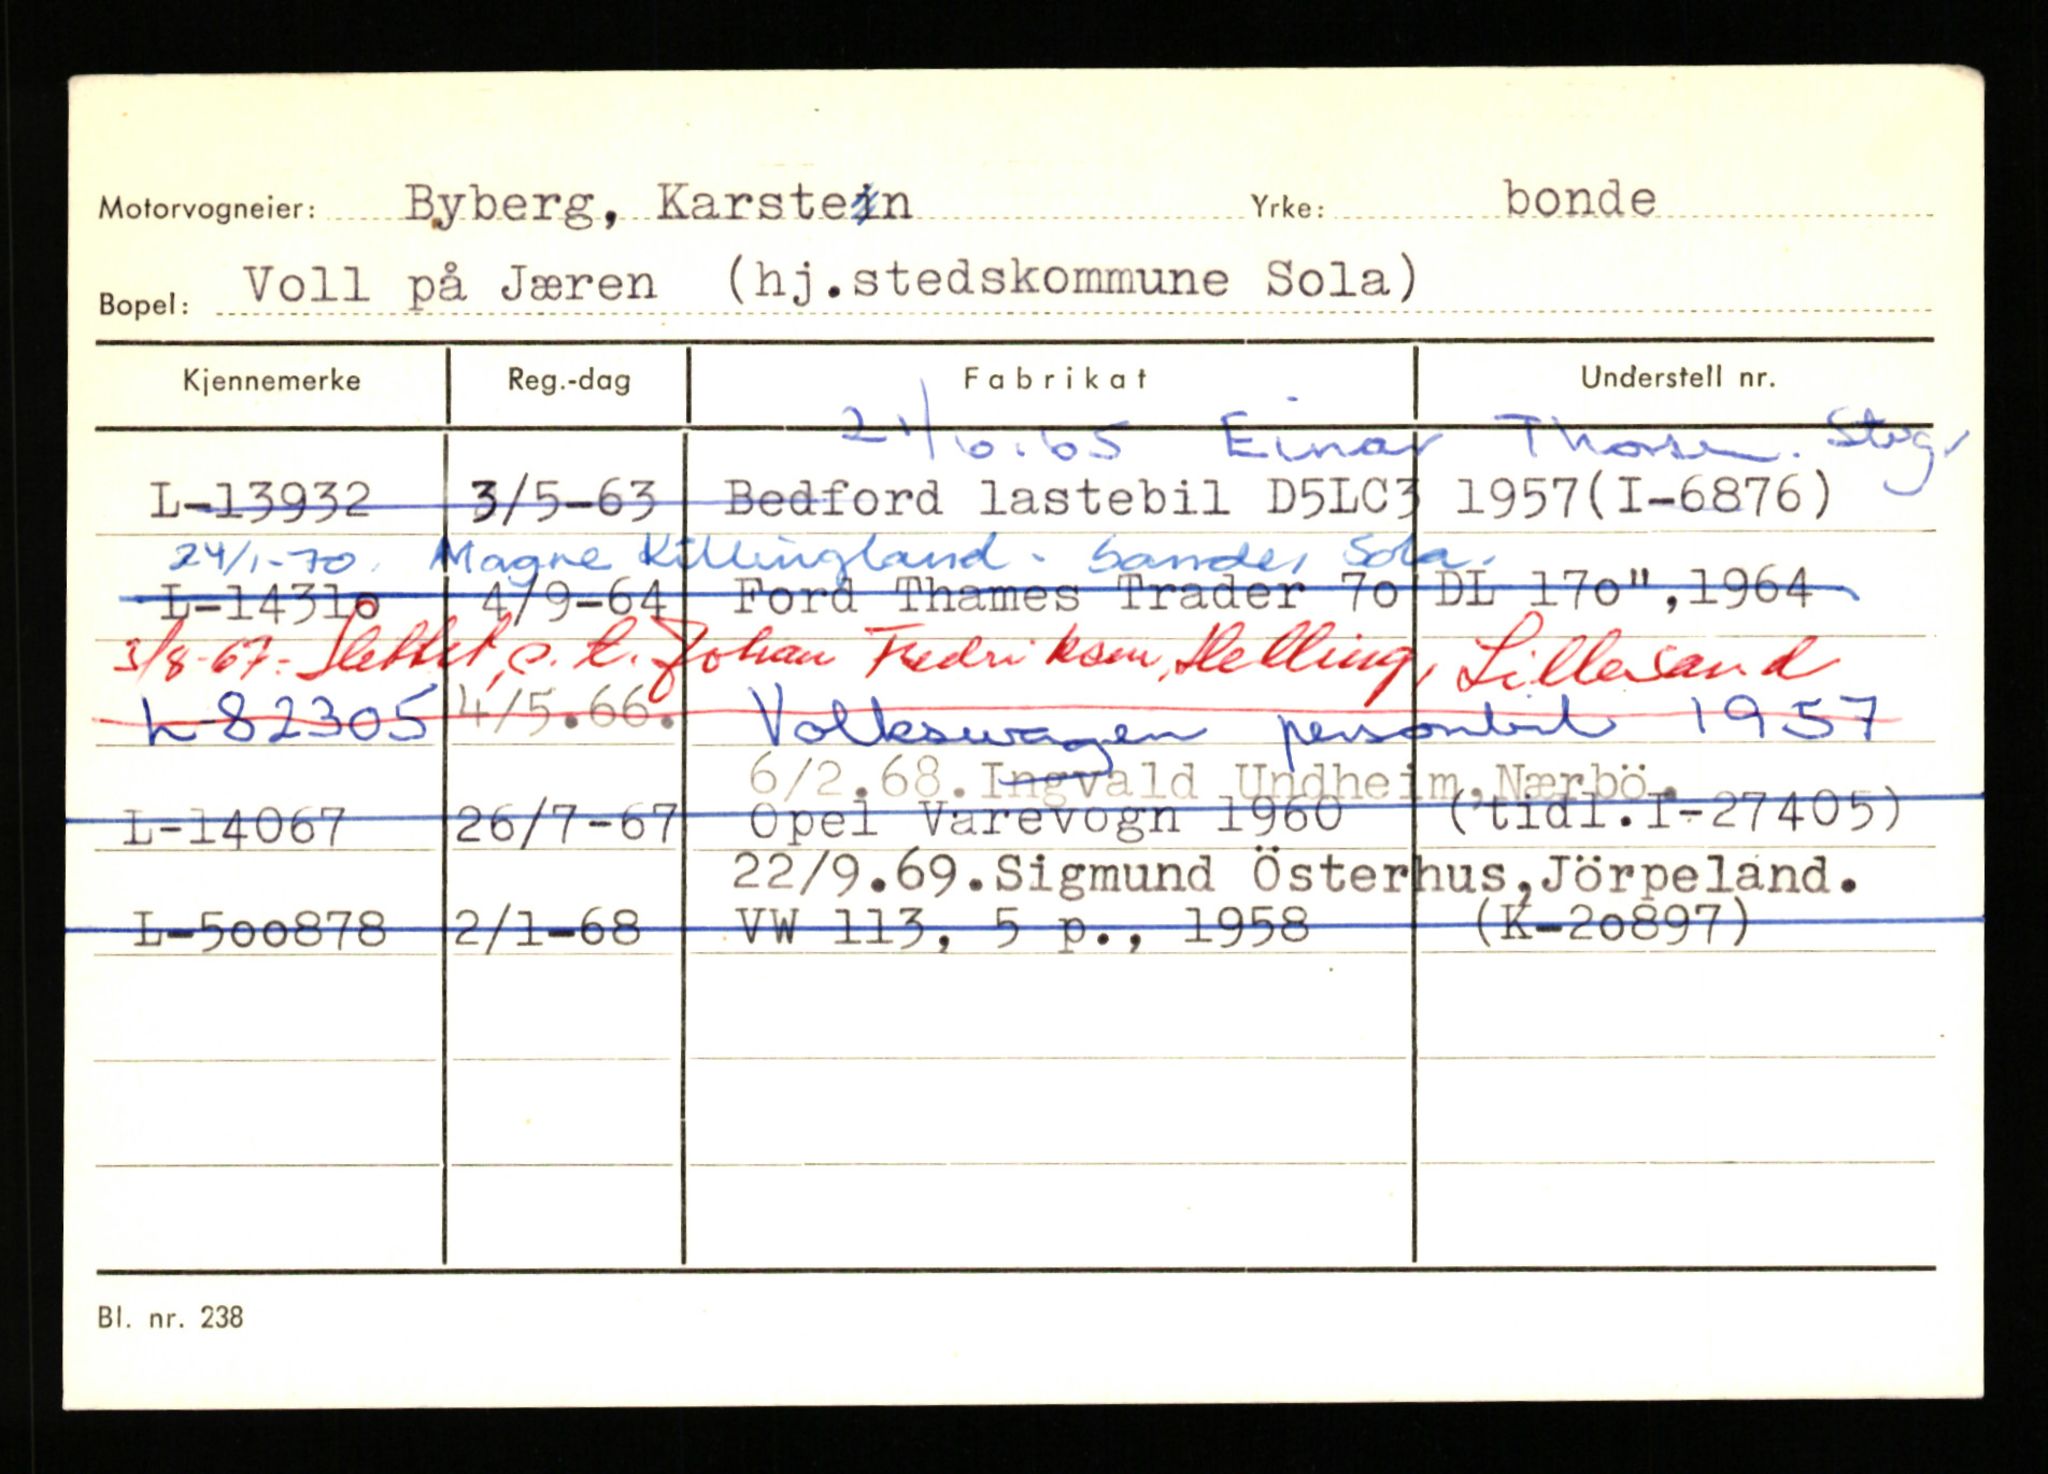 Motorvogneier: Byberg, Karstein Yrke: bonde
Bopel: Voll på Jæren (hj.stedskommune Sola)
Kjennemerke Reg.-dag Fabrikat Understell nr.
21/6.65 Einar Thorsen. Stvgr
L-13932 3/5-63 Bedford lastebil D5LC3 1957(I-6876)
24/1-70. Magne Killingland - Sande, Sola.
L-1431o 4/9-64 Ford Thames Trader 7o DL 17o",1964
3/8-67.- Slettet, Johan Fredriksen, Helling, Lillesand
L-82305 4/5.66. Volkswagen personbil 1957
6/2.68.Ingvald Undheim,Nærbö.
L-14067 26/7-67 Opel Varevogn 1960 (tidl.I-27405)
22/9.69.Sigmund Österhus,Jörpeland.
L-5oo878 2/1-68 VW 113, 5 p., 1958 (K-2o897)
Bl. nr. 238